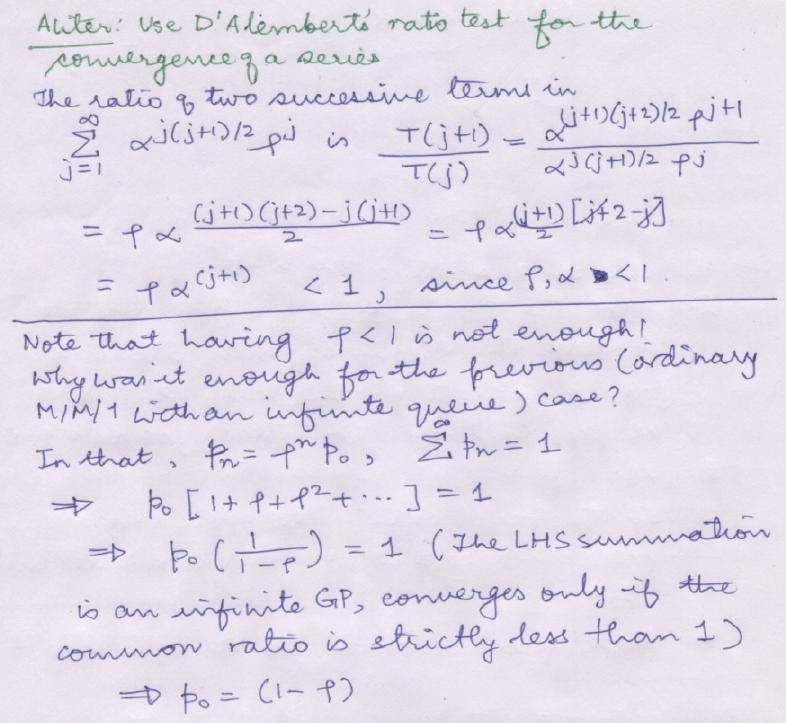 Aliter: Use D'Alembert's ratio test for the
convergence of a series
The ratio of two successive terms in
∞
∑ α^{j(j+1)/2} ρ^j is T(j+1)/T(j) = α^{(j+1)(j+2)/2} ρ^{j+1} / α^{j(j+1)/2} ρ^j
j=1
= ρ α^{((j+1)(j+2)-j(j+1))/2} = ρ α^{(j+1)/2 [j+2-j]}
= ρ α^{(j+1)} < 1, since ρ, α < 1.
Note that having ρ < 1 is not enough!
Why was it enough for the previous (ordinary
M/M/1 with an infinite queue) case?
In that, p_n = ρ^n p_0, ∑^∞ p_n = 1
⇒ p_0 [1 + ρ + ρ^2 + ...] = 1
⇒ p_0 (1/(1-ρ)) = 1 (The LHS summation
is an infinite GP, converges only if the
common ratio is strictly less than 1)
⇒ p_0 = (1-ρ)